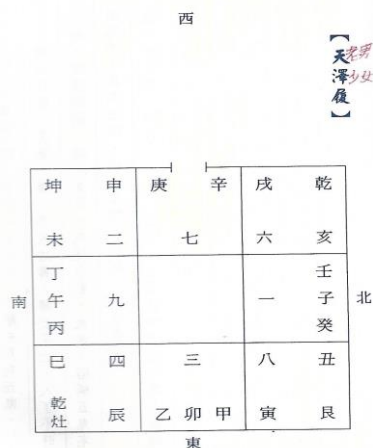 西
【天澤履】
老男
少女
坤 申 庚 辛 戌 乾
未 二 七 六 亥
丁 壬
南 午 九 一 子 北
丙 癸
巳 四 三 八 丑
乾
灶 辰 乙 卯 甲 寅 艮
東